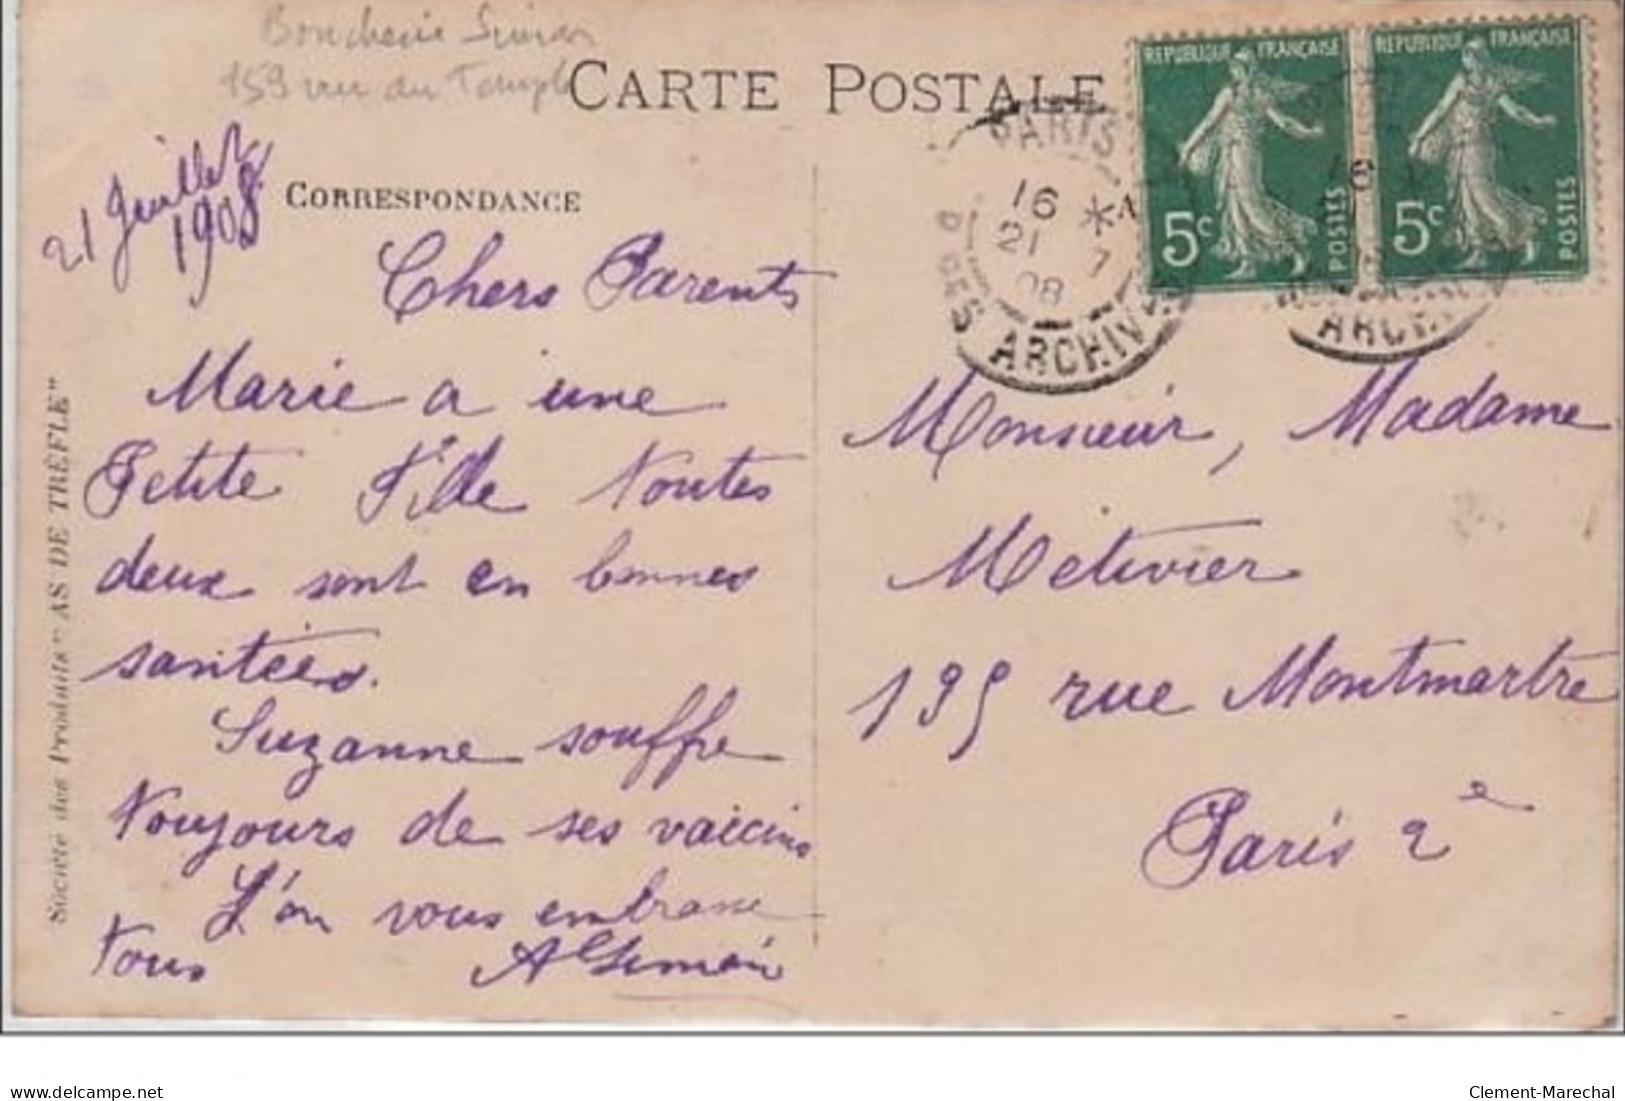 Boucherie
159 rue du Temple
CARTE POSTALE
REPUBLIQUE FRANÇAISE
5c POSTES
REPUBLIQUE FRANÇAISE
5c POSTES
PARIS
16 *
21 7
08
ARCHIV
16
ARCH
21 Juillet
1908
CORRESPONDANCE
Chers Parents
Marie a une
Petite Fille Toutes
deux sont en bonnes
santées.
Suzanne souffre
toujours de ses vaccins
L'on vous embrasse
tous
Monsieur, Madame
Métivier
195 rue Montmartre
Paris 2e
Société des Produits "AS DE TRÈFLE"
delcampe.net
Clement-Marechal